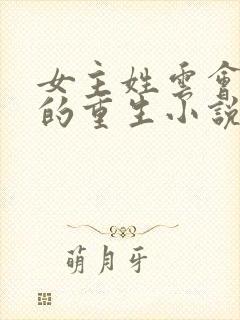 女主姓雲會
的重生小說
萌月牙